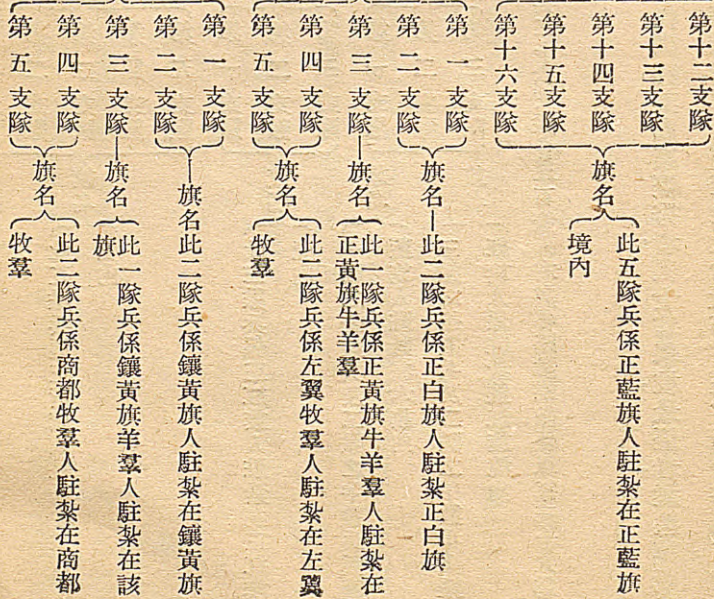 第十二支隊
第十三支隊
第十四支隊
第十五支隊
第十六支隊
旗名
此五隊兵係正藍旗人駐紮在正藍旗
境內
第一支隊
第二支隊
旗名
此二隊兵係正白旗人駐紮正白旗
第三支隊
旗名
此一隊兵係正黃旗牛羊羣人駐紮在
正黃旗牛羊羣
第四支隊
第五支隊
旗名
此二隊兵係左翼牧羣人駐紮在左翼
牧羣
第一支隊
第二支隊
旗名
此二隊兵係鑲黃旗人駐紮在鑲黃旗
第三支隊
旗名
此一隊兵係鑲黃旗羊羣人駐紮在該
旗
第四支隊
第五支隊
旗名
此二隊兵係商都牧羣人駐紮在商都
牧羣